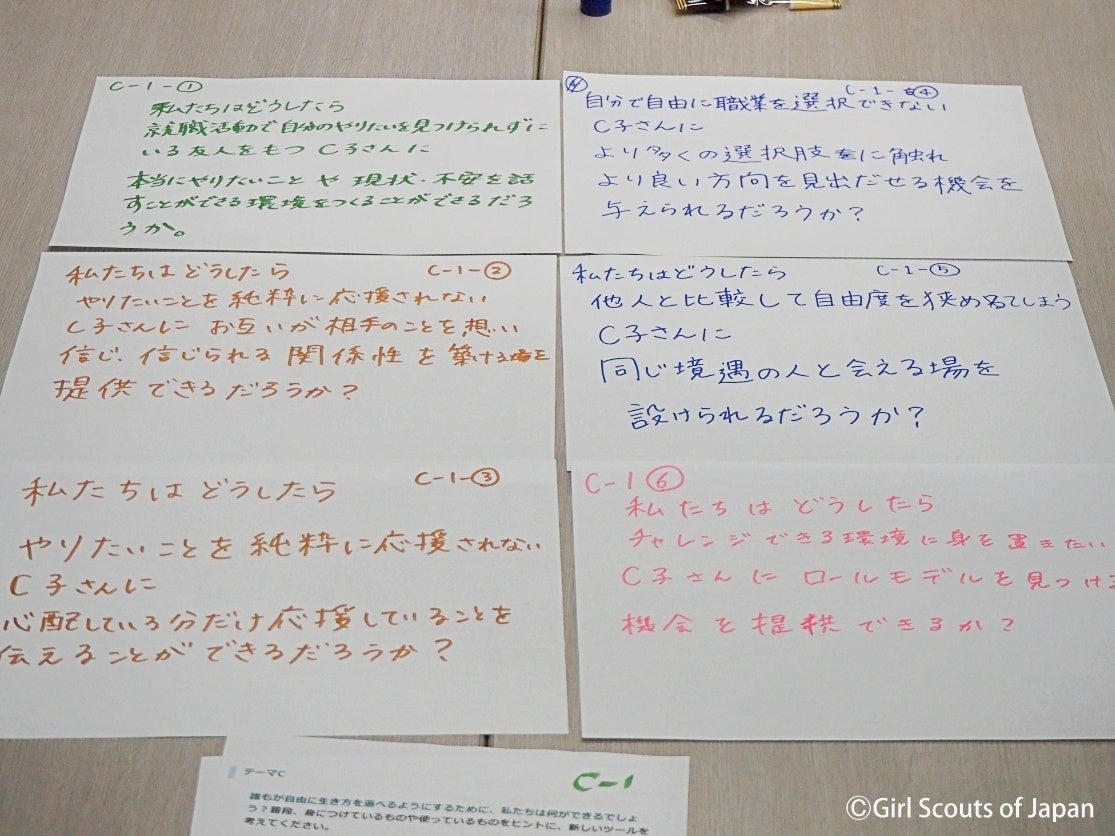 C-1-①
私たちはどうしたら
就職活動で自分のやりたいを見つけられずに
いる友人をもつ C子さんに
本当にやりたいこと や 現状・不安を話
すことができる環境をつくることができるだろ
うか。
C-1-④
自分で自由に職業を選択できない
C子さんに
より多くの選択肢に触れ
より良い方向を見出だせる機会を
与えられるだろうか?
私たちは どうしたら C-1-②
やりたいことを 純粋に応援されない
C子さんに お互いが 相手のことを 想い
信じ、信じられる 関係性 を 築ける場を
提供 できるだろうか?
私たちはどうしたら C-1-⑤
他人と比較して自由度を狭めてしまう
C子さんに
同じ境遇の人と会える場を
設けられるだろうか?
C-1-③
私たちは どうしたら
やりたいことを 純粋に応援されない
C子さんに
心配している分だけ応援していることを
伝えることが できるだろうか?
C-1⑥
私たちは どうしたら
チャレンジできる環境に身を置きたい
C子さんに ロールモデルを見つける
機会を提供できるか?
テーマC C-1
誰もが自由に生き方を選べるようにするために、私たちは何ができるでしょ
う?普段、身につけているものや使っているものをヒントに、新しいツールを
考えてください。
©Girl Scouts of Japan